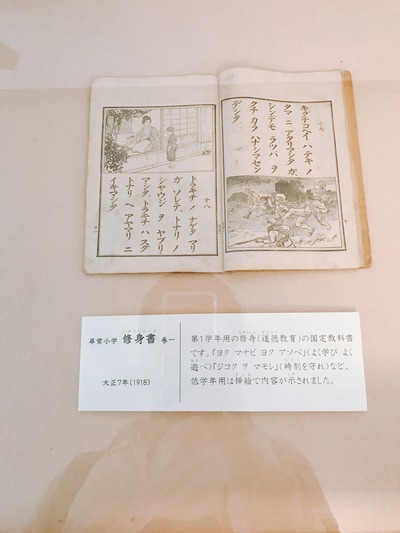 十七
キグチコヘイ ハ テキノ
タマ ニ アタリマシタ ガ、
シンデモ ラッパ ヲ
クチ カラ ハナシマセン
デシタ。
十八
トラキチ ノ ナゲタ マリ
ガ ソレテ、トナリ ノ
シャウジ ヲ ヤブリ
マシタ。トラキチ ハ スグ
トナリ ヘ アヤマリ ニ
イキマシタ。
尋常小学 修身書 巻一
しゅうしんしょ
大正7年(1918)
第1学年用の修身(道徳教育)の国定教科書
です。「ヨク マナビ ヨク アソベ」(よく学び よく
遊べ)「ジコク ヲ マモレ」(時刻を守れ)など、
低学年用は挿絵で内容が示されました。